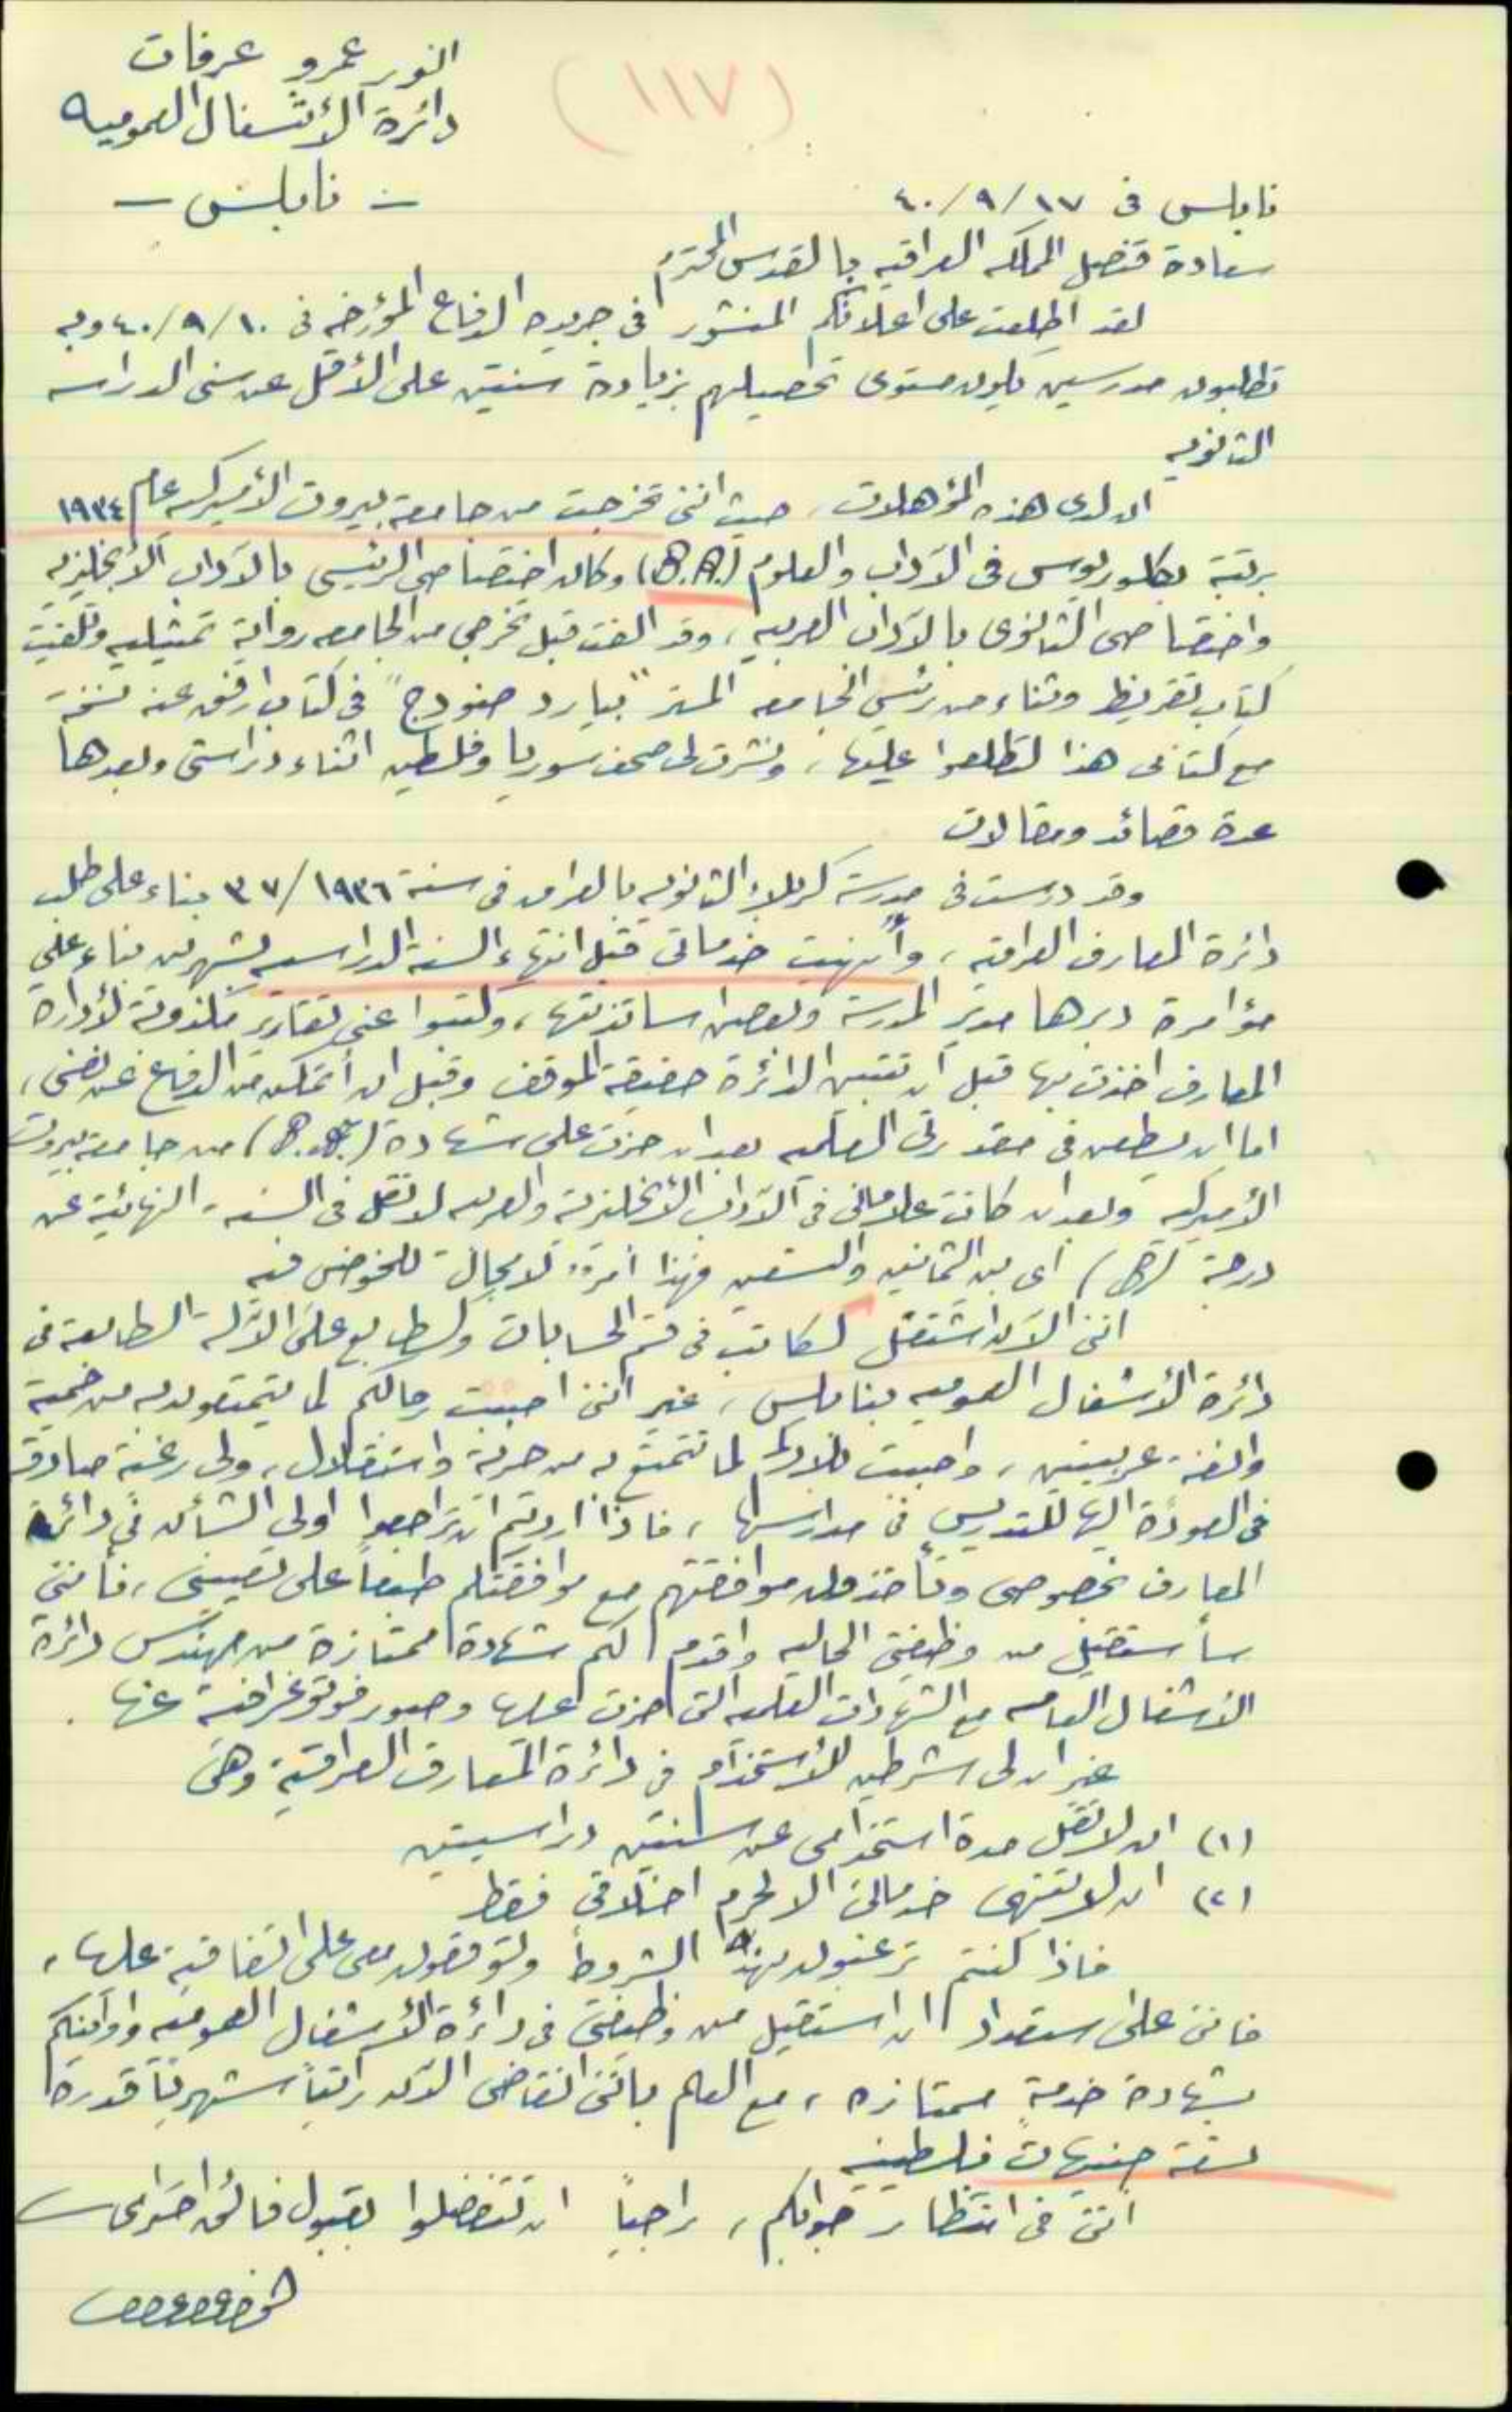 (١١٧)
النور عمرو عرفات
دائرة الأشغال العموميه
- نابلس -
نابلس في ١٧/٩/٤٠
سعادة قنصل المملكه العراقيه بالقدس المحترم
لقد اطلعت على اعلانكم المنشور في جريدة الدفاع المؤرخه في ١٠/٩/٤٠ وبه
تطلبون مدرسين يكون مستوى تحصيلهم بزيادة سنتين على الأقل عن سني الدراسه
الثانويه
ان لدى هذه المؤهلات، حيث انني تخرجت من جامعة بيروت الأميركيه عام ١٩٣٤
برتبة بكلوريوس في الآداب والعلوم (B.A.) وكان اختصاصي الرئيسي بالآداب الأنجليزيه
واختصاصي الثانوي بالآداب العربيه، وقد الفت قبل تخرجي من الجامعه رواية تمثيليه وتلقيت
كتاب تقريظ وثناء من رئيس الجامعه المستر "بيارد ضودج" في كتاب ارفق عنه نسخة
مع كتابي هذا لتطلعوا عليها، ونشرت لي صحف سوريا وفلسطين اثناء دراستي وبعدها
عدة قصائد ومقالات
وقد درست في مدرسة كربلاء الثانويه بالعراق في سنة ١٩٣٦/٣٧ بناء على طلب
دائرة المعارف العراقيه، وأنهيت خدماتي قبل انتهاء السنه الدراسيه بشهرين بناء على
مؤامرة دبرها مدير المدرسة وبعض اساتذتها، وكتبوا عني تقارير مكذوبة لأدارة
المعارف اخذت بها قبل أن تتبين الدائرة حقيقة الموقف وقبل ان أتمكن من الدفاع عن نفسي،
اما ان يطعن في مقدرتي العلميه بعد ان حزت على شهادة (B.A.) من جامعة بيروت
الأميركيه وبعد ان كانت علاماتي في الآداب الأنجليزية والعربيه لا تقل في السنه النهائية عن
درجة (B) أي بين الثمانين والتسعين فهذا أمر لا مجال للخوض فيه
انني الآن اشتغل لكاتب في قسم الحسابات ولطابع على الآلة الطابعة في
دائرة الأشغال العموميه بنابلس، غير انني احببت رجالكم لما يتمتعون به من حمية
وانفة عربيتين، واحببت بلادكم لما تتمتع به من حرية واستقلال، ولي رغبة صادقة
في العودة اليها للتدريس في مدارسها، فاذا اردتم ان تراجعوا اولي الشأن في دائرة
المعارف بخصوصي وتأخذون موافقتهم مع موافقتكم طبعاً على تعييني، فأنني
سأستقيل من وظيفتي الحاليه واقدم لكم شهادة ممتازة من مهندس دائرة
الأشغال العامه مع الشهادات العلميه التي احزت عليها وصور فوتوغرافية عنها.
غير ان لي شرطين للأستخدام في دائرة المعارف العراقية وهي
(١) ان لا تقل مدة استخدامي عن سنتين دراسيتين
(٢) ان لا تنتهي خدماتي الا لجرم اخلاقي فقط
فاذا كنتم ترغبون بهذه الشروط وتوقعون معي على اتفاقية عليها،
فانني على استعداد ان استقيل من وظيفتي في دائرة الأشغال العموميه وأوافيكم
بشهادة خدمة ممتازه، مع العلم بانني اتقاضى الآن راتباً شهرياً قدره
تسعة جنيهات فلسطينيه
انني في انتظار جوابكم، راجياً ان تتفضلوا بقبول فائق احترامي